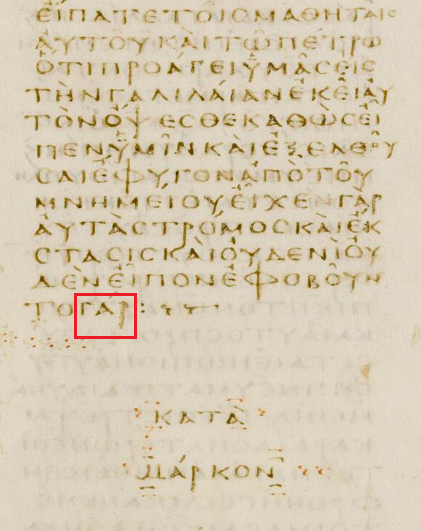 ΕΙΠΑΤΕΤΟΙϹΜΑΘΗΤΑΙϹ
ΑΥΤΟΥΚΑΙΤΩΠΕΤΡΩ
ΟΤΙΠΡΟΑΓΕΙΥΜΑϹΕΙϹ
ΤΗΝΓΑΛΙΛΑΙΑΝΕΚΕΙΑΥ
ΤΟΝΟΨΕϹΘΕΚΑΘΩϹΕΙ
ΠΕΝΥΜΙΝΚΑΙΕΞΕΛΘΟΥ
ϹΑΙΕΦΥΓΟΝΑΠΟΤΟΥ
ΜΝΗΜΕΙΟΥΕΙΧΕΝΓΑΡ
ΑΥΤΑϹΤΡΟΜΟϹΚΑΙΕΚ
ϹΤΑϹΙϹΚΑΙΟΥΔΕΝΙΟΥ
ΔΕΝΕΙΠΟΝΕΦΟΒΟΥΝ
ΤΟΓΑΡ
ΚΑΤΑ
ΜΑΡΚΟΝ